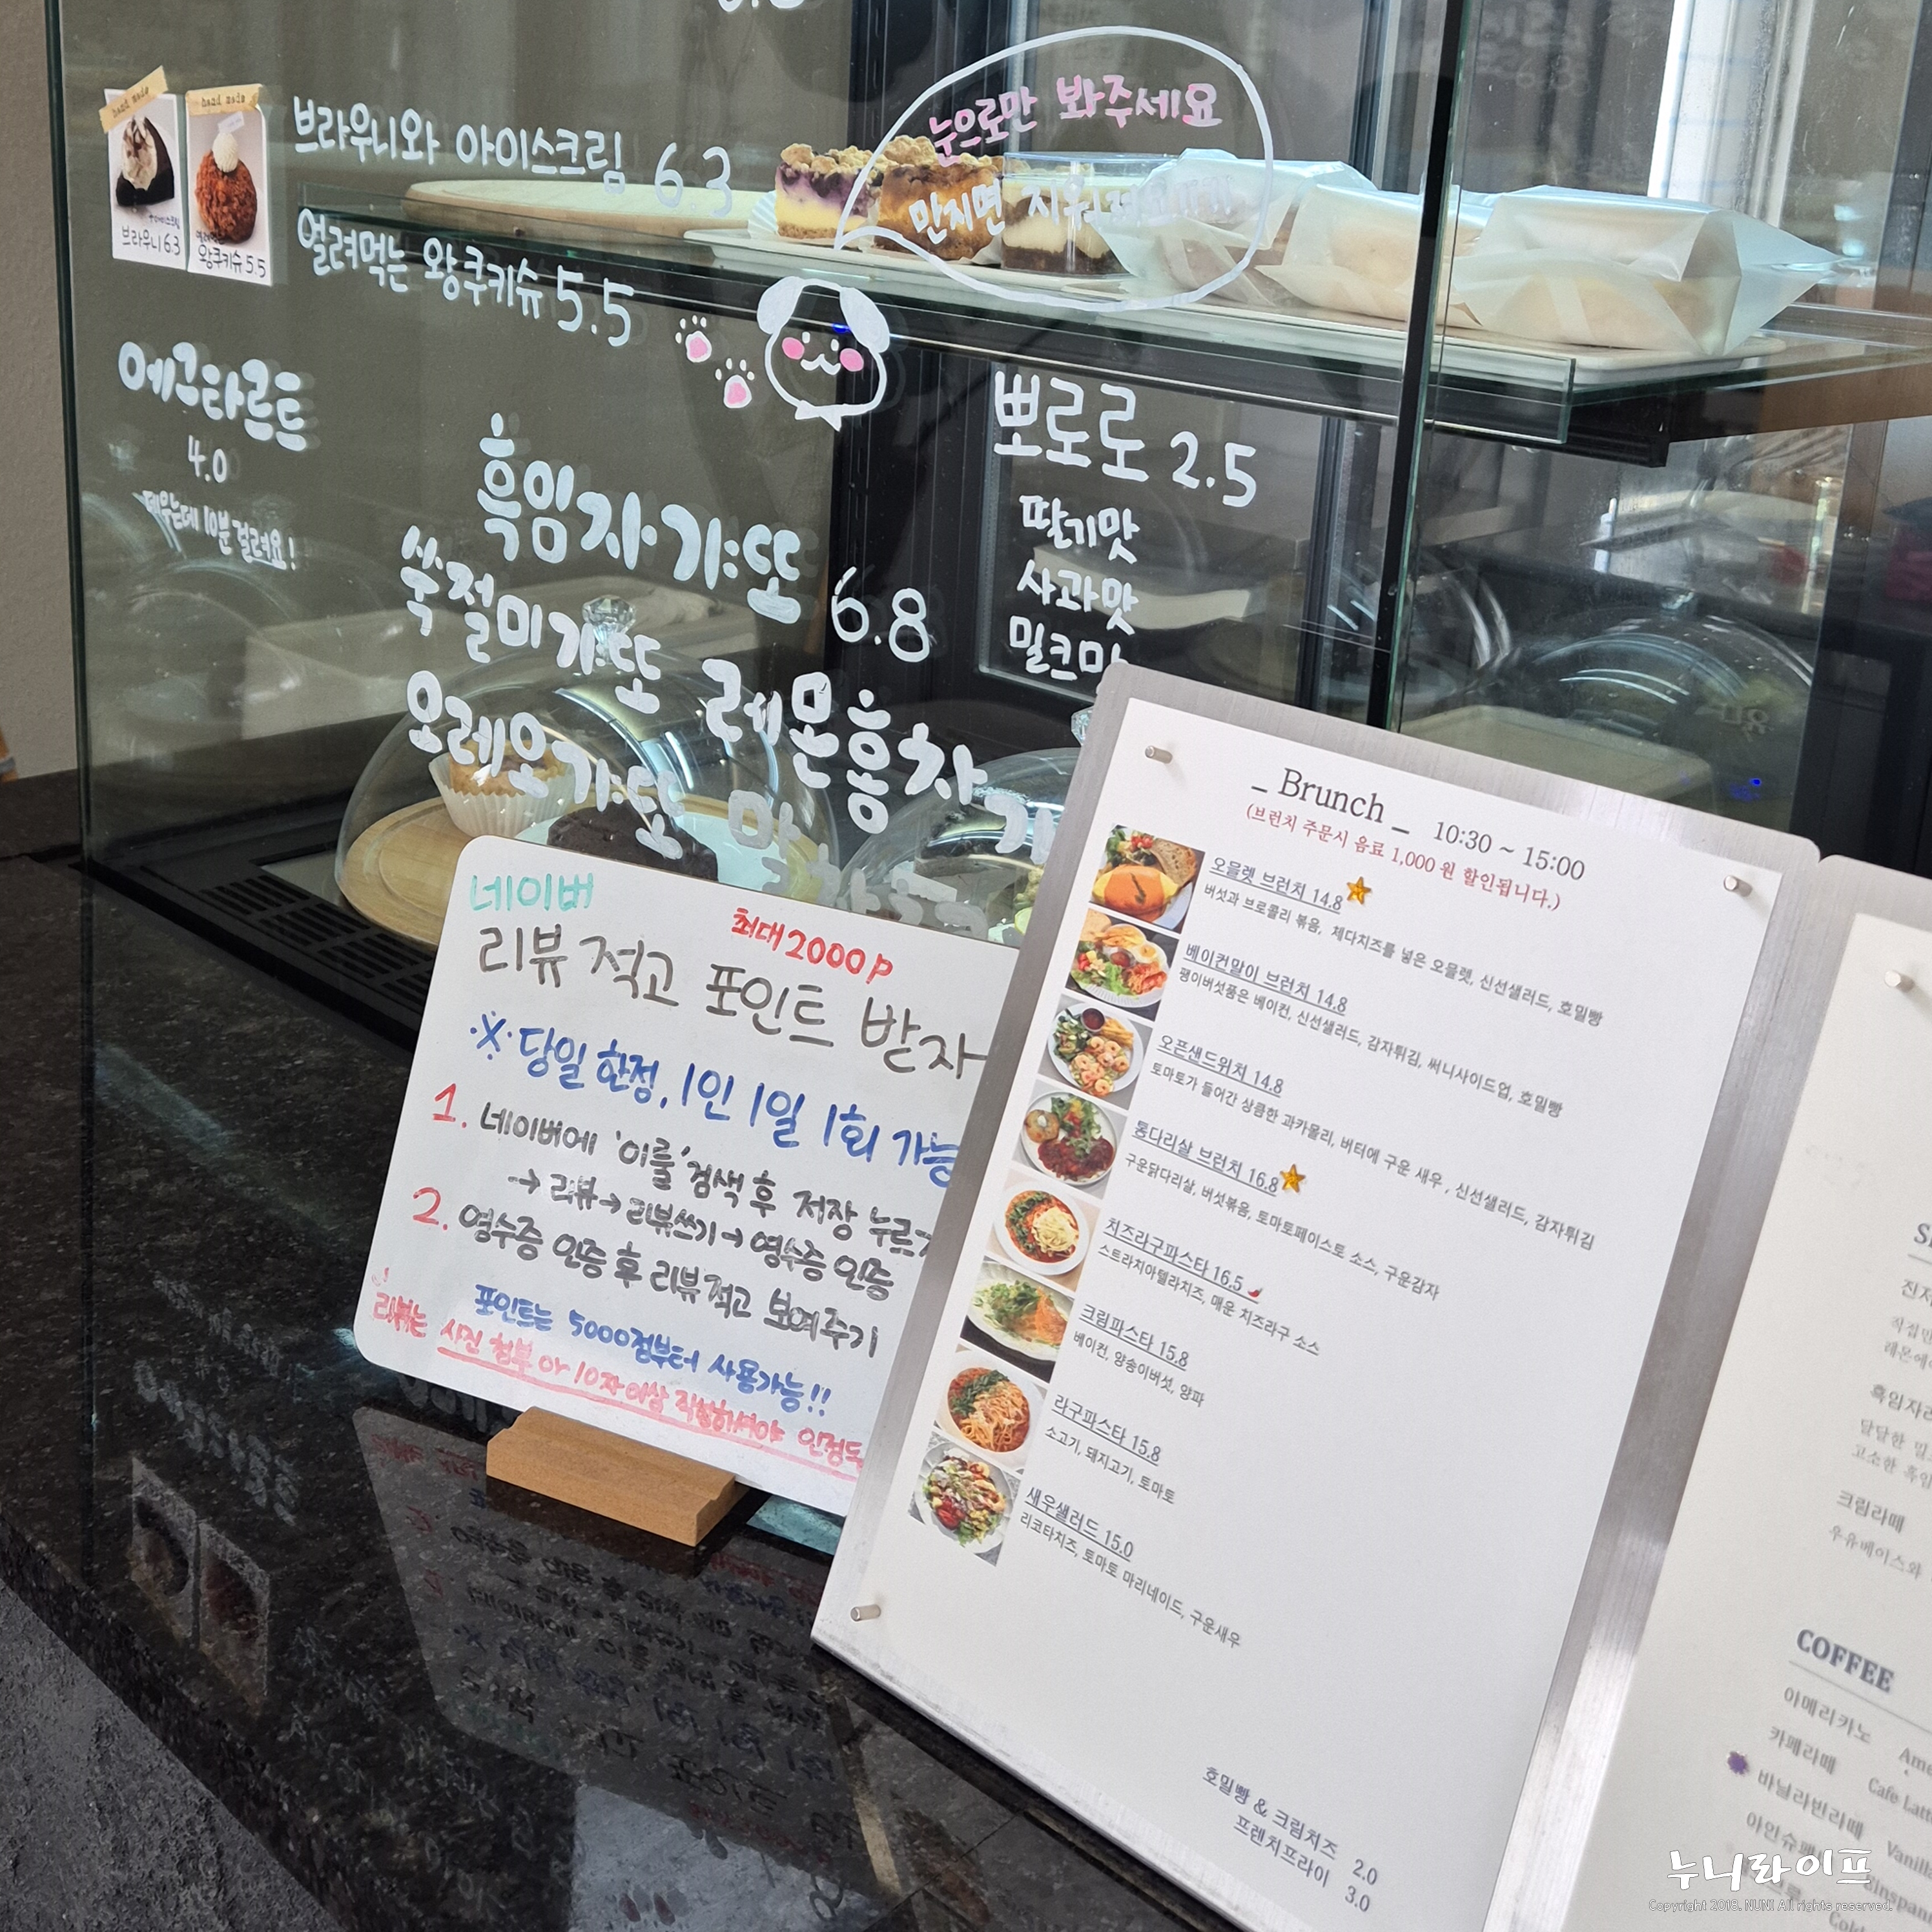 hand made
hand made
브라우니 6.3
왕쿠키슈 5.5
브라우니와 아이스크림 6.3
얼려먹는 왕쿠키슈 5.5
눈으로만 봐주세요
만지면
에그타르트
4.0
데우는데 10분 걸려요!
흑임자갸또
쑥절미갸또 6.8
오레오갸또 레몬홍차
뽀로로 2.5
딸기맛
사과맛
밀크맛
네이버
최대 2000p
리뷰 적고 포인트 받자
※ 당일 한정, 1인 1일 1회 가능
1. 네이버에 '이룰' 검색 후 저장 누르기
→ 리뷰 → 리뷰쓰기 → 영수증 인증
2. 영수증 인증 후 리뷰 적고 보여주기
포인트는 5000점부터 사용가능!!
리뷰는 사진 첨부 or 10자 이상 작성하셔야
- Brunch - 10:30 ~ 15:00
(브런치 주문시 음료 1,000 원 할인됩니다.)
오믈렛 브런치 14.8
버섯과 브로콜리 볶음, 체다치즈를 넣은 오믈렛, 신선샐러드, 호밀빵
베이컨말이 브런치 14.8
팽이버섯품은 베이컨, 신선샐러드, 감자튀김, 써니사이드업, 호밀빵
오픈샌드위치 14.8
토마토가 들어간 상큼한 과카몰리, 버터에 구운 새우 , 신선샐러드, 감자튀김
통다리살 브런치 16.8
구운닭다리살, 버섯볶음, 토마토페이스토 소스, 구운감자
치즈라구파스타 16.5
스트라치아텔라치즈, 매운 치즈라구 소스
크림파스타 15.8
베이컨, 양송이버섯, 양파
라구파스타 15.8
소고기, 돼지고기, 토마토
새우샐러드 15.0
리코타치즈, 토마토 마리네이드, 구운새우
호밀빵 & 크림치즈 2.0
프렌치프라이 3.0
달달한
고소한
크림라떼
우유베이스와
COFFEE
아메리카노
카페라떼 Cafe
바닐라빈라떼
누니라이프
Copyright 2018. NUNI All rights reserved.